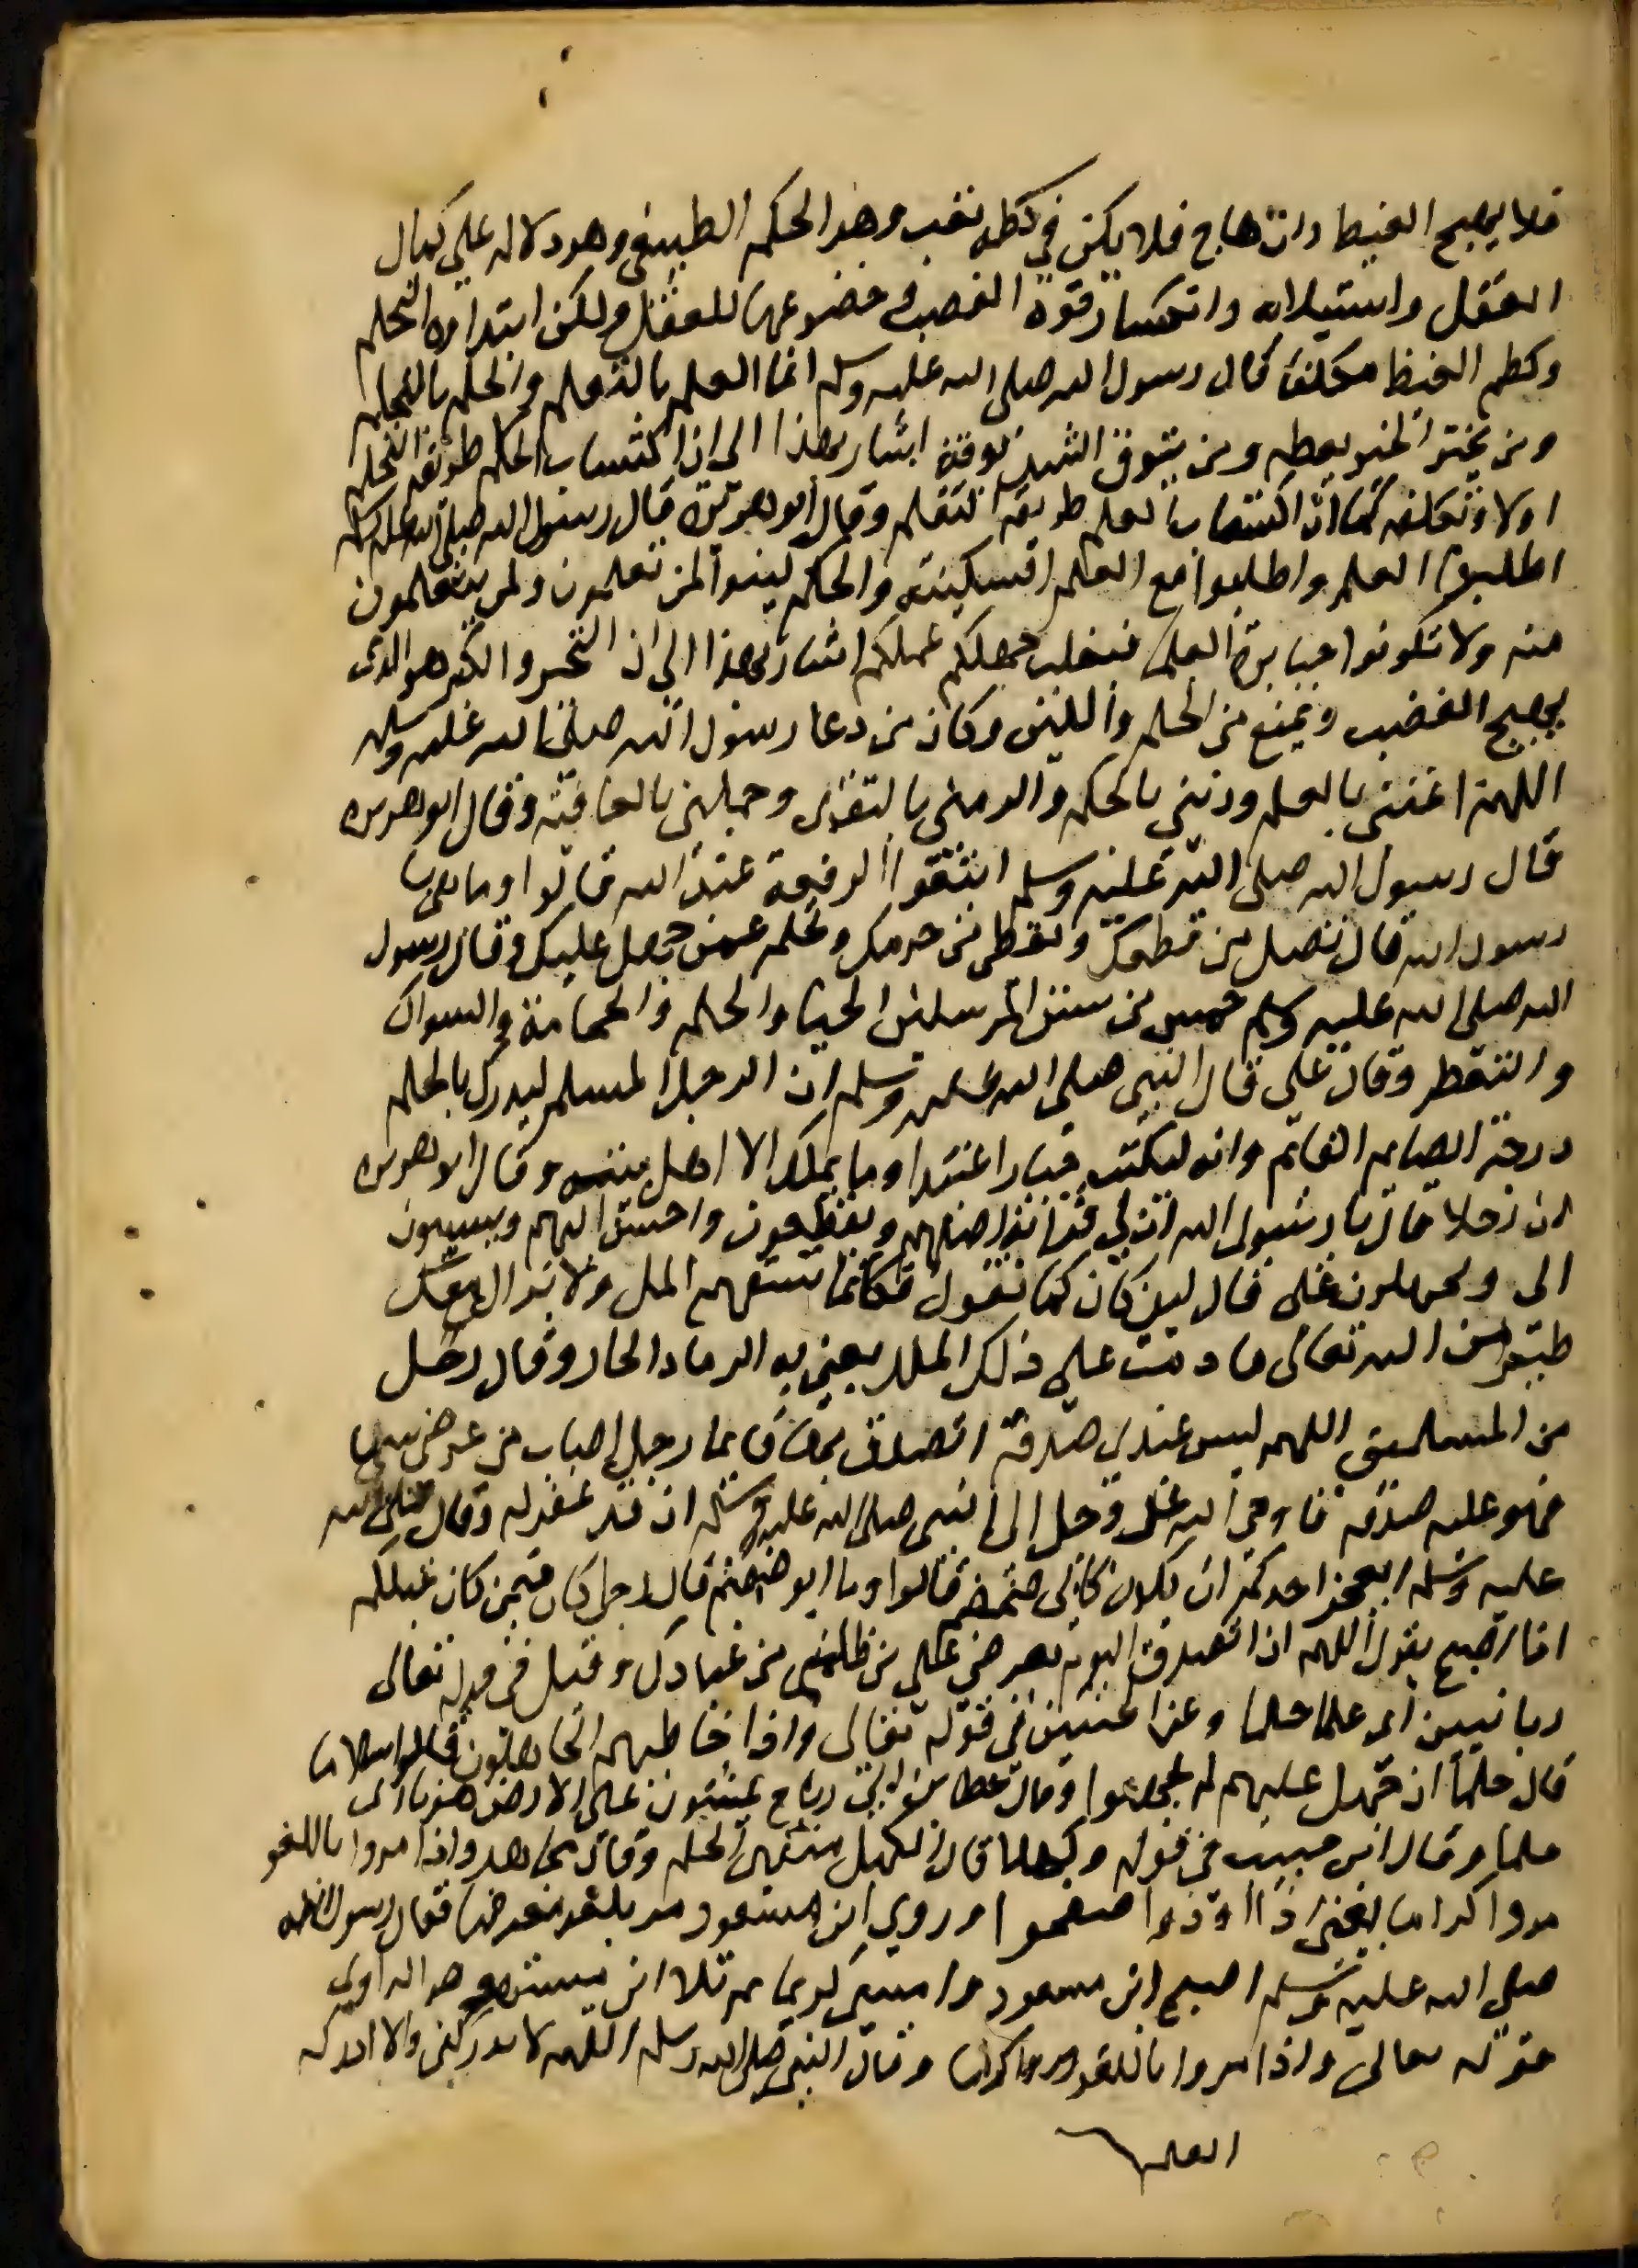 فلا يهيج الغيظ وان هاج فلا يكن في كظمه تعب وهو الحلم الطبيعي وهو دلاله على كمال
العقل واستيلايه وانكسار قوة الغضب وخضوعها للعقل ولكن ابتداوه التحلم
وكظم الغيظ تكلفا قال رسول الله صلى الله عليه وسلم انما العلم بالتعلم والحلم بالتحلم
ومن يتخير الخير يعطه ومن يتوق الشر يوقه اشار بهذا الى ان اكتساب الحلم طريقه التحلم
اولا وتكلفه كما ان اكتساب العلم طريقه التعلم وقال ابو هريرة قال رسول الله صلى الله عليه وسلم
اطلبوا العلم واطلبوا مع العلم السكينة والحلم لينوا لمن تعلمون ولمن تتعلمون
منه ولا تكونوا جبابرة العلما فيغلب جهلكم علمكم اشار بهذا الى ان التجبر والتكبر هو الذي
يهيج الغضب ويمنع من الحلم واللين وكان من دعا رسول الله صلى الله عليه وسلم
اللهم اغنني بالعلم وزيني بالحلم واكرمني بالتقوى وجملني بالعافية وقال ابو هريرة
قال رسول الله صلى الله عليه وسلم ابتغوا الرفعة عند الله قالوا وما هي يا
رسول الله قال تصل من قطعك وتعطي من حرمك وتحلم عمن جهل عليك وقال رسول
الله صلى الله عليه وسلم خمس من سنن المرسلين الحيا والحلم والحجامة والسواك
والتعطر وقال علي قال النبي صلى الله عليه وسلم ان الرجل المسلم ليدرك بالحلم
درجة الصايم القايم وانه ليكتب جبارا عنيدا وما يملك الا اهل بيته وقال ابو هريرة
ان رجلا قال يا رسول الله ان لي قرابة اصلهم ويقطعون واحسن اليهم ويسيون
الى ويجهلون على قال لين كان كما تقول فكانما تسفهم المل ولا يزال معك
ظهير من الله تعالى ما دمت على ذلك المل يعني به الرماد الحار وقال رجل
من المسلمين اللهم ليس عندي صدقة اتصدق بها فايما رجل اصاب من عرضي شيا
فهو عليه صدقة فاوحى الله عز وجل الى النبي صلى الله عليه وسلم ان قد غفر له وقال صلى الله
عليه وسلم ايعجز احدكم ان يكون كابي ضمضم قالوا وما ابو ضمضم قال رجل كان فيمن كان قبلكم
اذا اصبح يقول اللهم اني اتصدق اليوم بعرضي على من ظلمني من عبادك وقيل في قوله تعالى
ربانيين اي علما حلما وعن الحسن في قوله تعالى واذا خاطبهم الجاهلون قالوا سلاما
قال حلما ان جهل عليهم لم يجهلوا وقال عطا بن ابي رباح يمشون على الارض هونا اي
حلما وقال ابن حبيب في قوله وكهلا قال الكهل منتهى الحلم وقال مجاهد واذا مروا باللغو
مروا كراما يعني اذا اوذوا صفحوا وروي ان ابن مسعود مر بلغو معرضا فقال رسول الله
صلى الله عليه وسلم اصبح ابن مسعود وامسى كريما ثم تلا ابن ميسرة هو الراوي
قوله تعالى واذا مروا باللغو مروا كراما وقال النبي صلى الله وسلم اللهم لا يدركني ولا ادركه
العلم